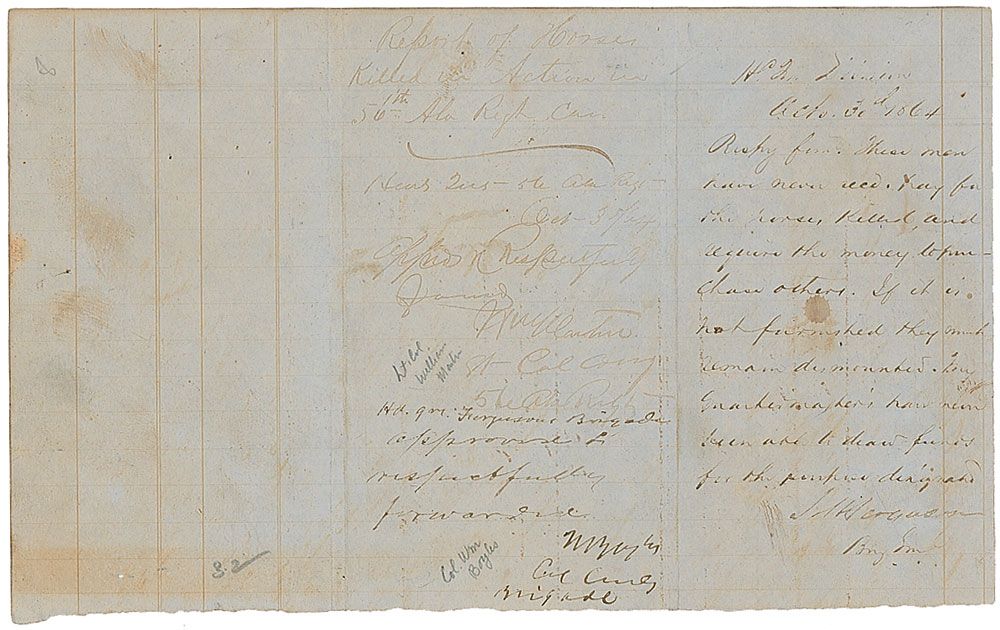 Report of Horses
Killed in Action in
56th Ala Regt Cav
Head Qrs 56 Ala Regt
Oct 3d /64
Appd & Respectfully
forwd
Wm Martin
Lt Col Comg
56 Ala Regt
Lt Col
William
Martin
Hd. qrs. Fergusons Brigade
approved &
respectfully
forwarded
W Boyles
Col Comdg
Brigade
Col Wm
Boyles
S. 2
Hd Qrs Division
Octo. 3d 1864
Respy forw. These men
have never recd. pay for
the horses killed, and
require the money to pur-
chase others. If it is
not furnished they must
remain dismounted. My
Quartermasters have never
been able to draw funds
for the purpose designated
S W Ferguson
Brig Genl